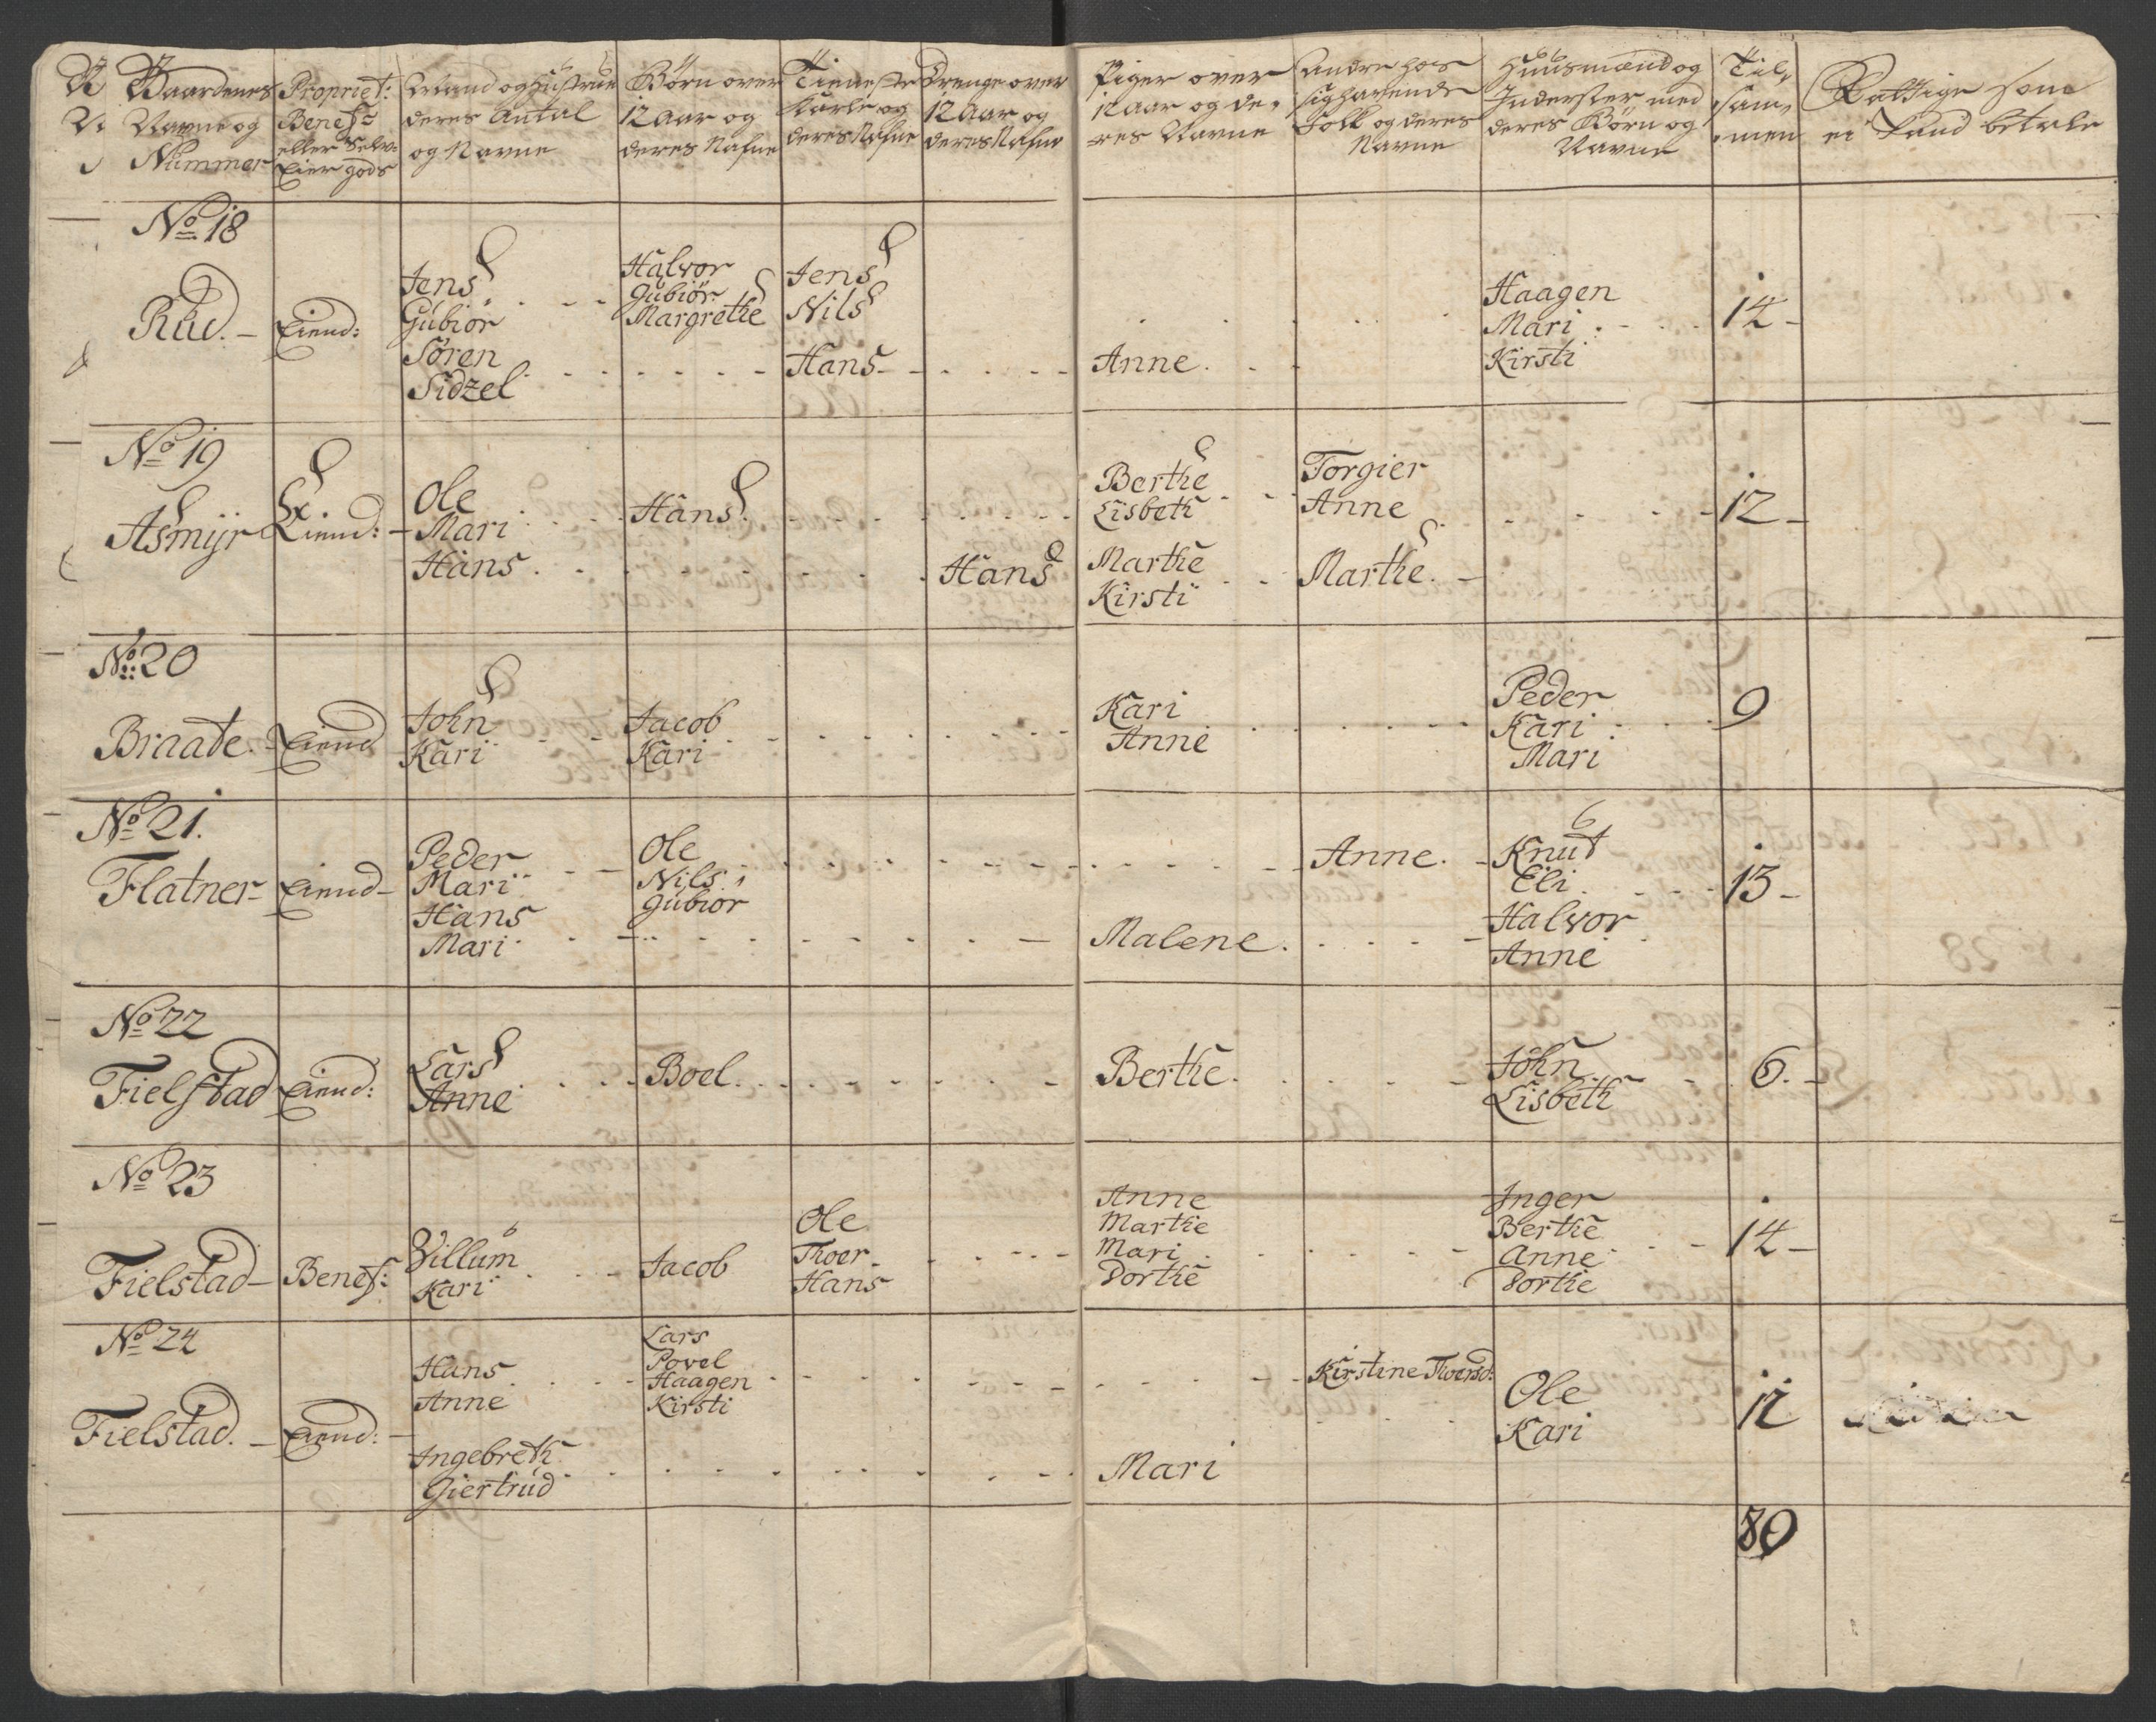 Gaardenes
Navne og
Nummer
Propriet:
Benef:
eller Selv-
Eier gods
Mand og Hustrue
deres Antal
og Navne
Börn over
12 Aar og
deres Nafne
Tieneste
Karle og
deres Nafne
Drenge over
12 Aar og
deres Nafne
Piger over
12 Aar og de-
res Navne
Andre hos
sig havende
Folk og deres
Navne
Huusmænd og
Inderster med
deres Börn og
Navne
Til-
sam-
men
Fattige som
ei kand betale
No 18
Rud. - Eiend:
Jens
Gubiör
Sören
Sidzel
Halvor
Gubiör
Margrethe
Jens
Nils
Hans
Anne.
Haagen
Mari
Kirsti
14 -
No 19
Asmyr Eiend: -
Ole
Mari
Hans
Hans
Hans
Berthe
Lisbeth
Marthe
Kirsti
Torgier
Anne
Marthe. -
12 -
No: 20
Braate. - Eiend
John
Kari
Jacob
Kari
Kari
Anne
Peder
Kari
Mari
9
No 21.
Flatner - Eiend -
Peder
Mari
Hans
Mari
Ole
Nils
Gubiör
Malene.
Anne. -
Knud
Eli
Halvor
Anne
13 -
No 22
Fielstad Eiend:
Lars
Anne
Boel.
Berthe.
John
Lisbeth
6. -
No 23
Fielstad - Benef:
Villum
Kari
Jacob
Ole
Thoer
Hans
Anne
Marthe
Mari
Dorthe
Inger
Berthe
Anne
Dorthe
14 -
No 24
Fielstad. - Eiend: -
Hans
Anne
Ingebreth
Giertrud
Lars
Povel
Haagen
Kirsti
Mari
Kirstine Thoersd:
Ole
Kari
12
80